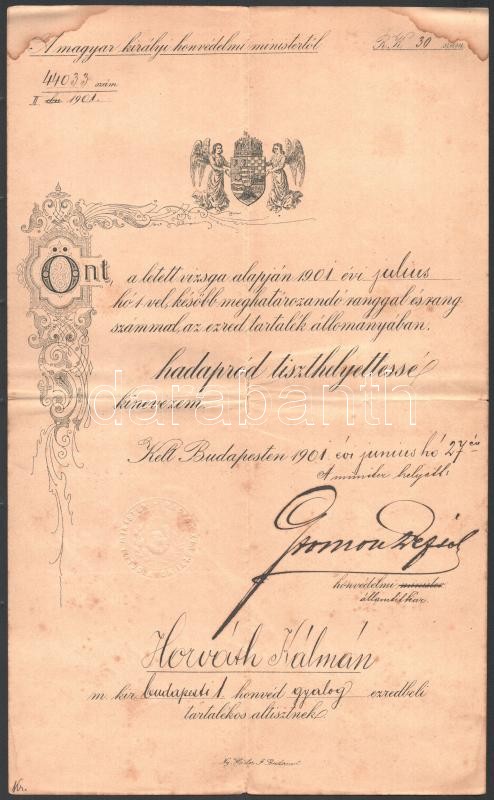 A magyar királyi honvédelmi ministertől
R.K. 30 szám
44033 szám
II 1901.
Önt, a letett vizsga alapján 1901 évi julius
hó 1-vel, később meghatározandó ranggal és rang
számmal, az ezred tartalék állományában.
hadapród tiszthelyettessé
kinevezem.
Kelt Budapesten 1901 évi junius hó 27 én
A minister helyett:
Gromon Dezső
honvédelmi minister
államtitkár.
Horváth Kálmán
m. kir. budapesti 1 honvéd gyalog ezredbeli
tartalékos altisztnek.
darabanth
Kr.